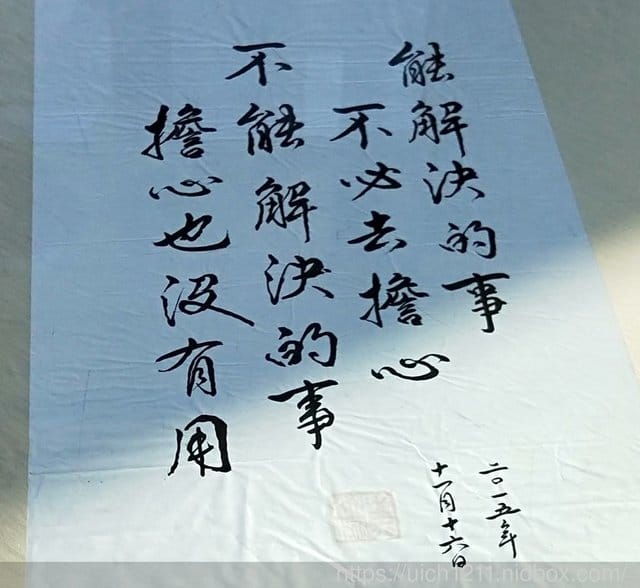 能解決的事
不必去擔心
不能解決的事
擔心也沒有用
二〇一五年
十一月十六日